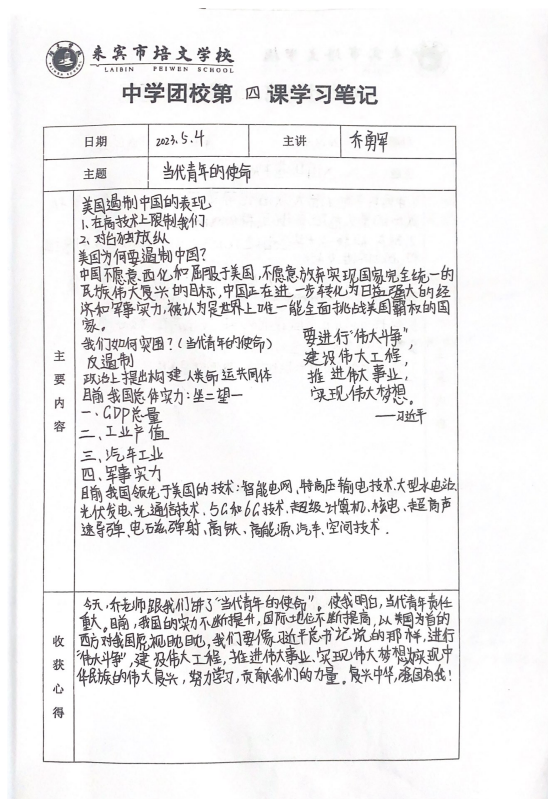 来宾市培文学校
LAIBIN PEIWEN SCHOOL
中学团校第 四 课学习笔记
日期 2023.5.4 主讲 乔勇军
主题 当代青年的使命
主要内容
美国遏制中国的表现
1、在高技术上限制我们
2、对台独放纵
美国为何要遏制中国?
中国不愿意西化和屈服于美国,不愿意放弃实现国家完全统一的
民族伟大复兴的目标,中国正在进一步转化为日益强大的经
济和军事实力,被认为是世界上唯一能全面挑战美国霸权的国
家。
我们如何突围?(当代青年的使命)
反遏制
政治上提出构建人类命运共同体
目前我国总体实力:坐二望一
一、GDP总量
二、工业产值
三、汽车工业
四、军事实力
要进行"伟大斗争",
建设伟大工程,
推进伟大事业,
实现伟大梦想。
——习近平
目前我国领先于美国的技术:智能电网、特高压输电技术、大型水电站、
光伏发电、光通信技术、5G和6G技术、超级计算机、核电、超高声
速导弹、电磁弹射、高铁、高能源、汽车、空间技术.
收获心得
今天,乔老师跟我们讲了"当代青年的使命"。使我明白,当代青年责任
重大。目前,我国的实力不断提升,国际地位不断提高,以美国为首的
西方对我国虎视眈眈。我们要像习近平总书记说的那样,进行
"伟大斗争",建设伟大工程,推进伟大事业、实现伟大梦想,为实现中
华民族的伟大复兴,努力学习,贡献我们的力量。复兴中华,强国有我!